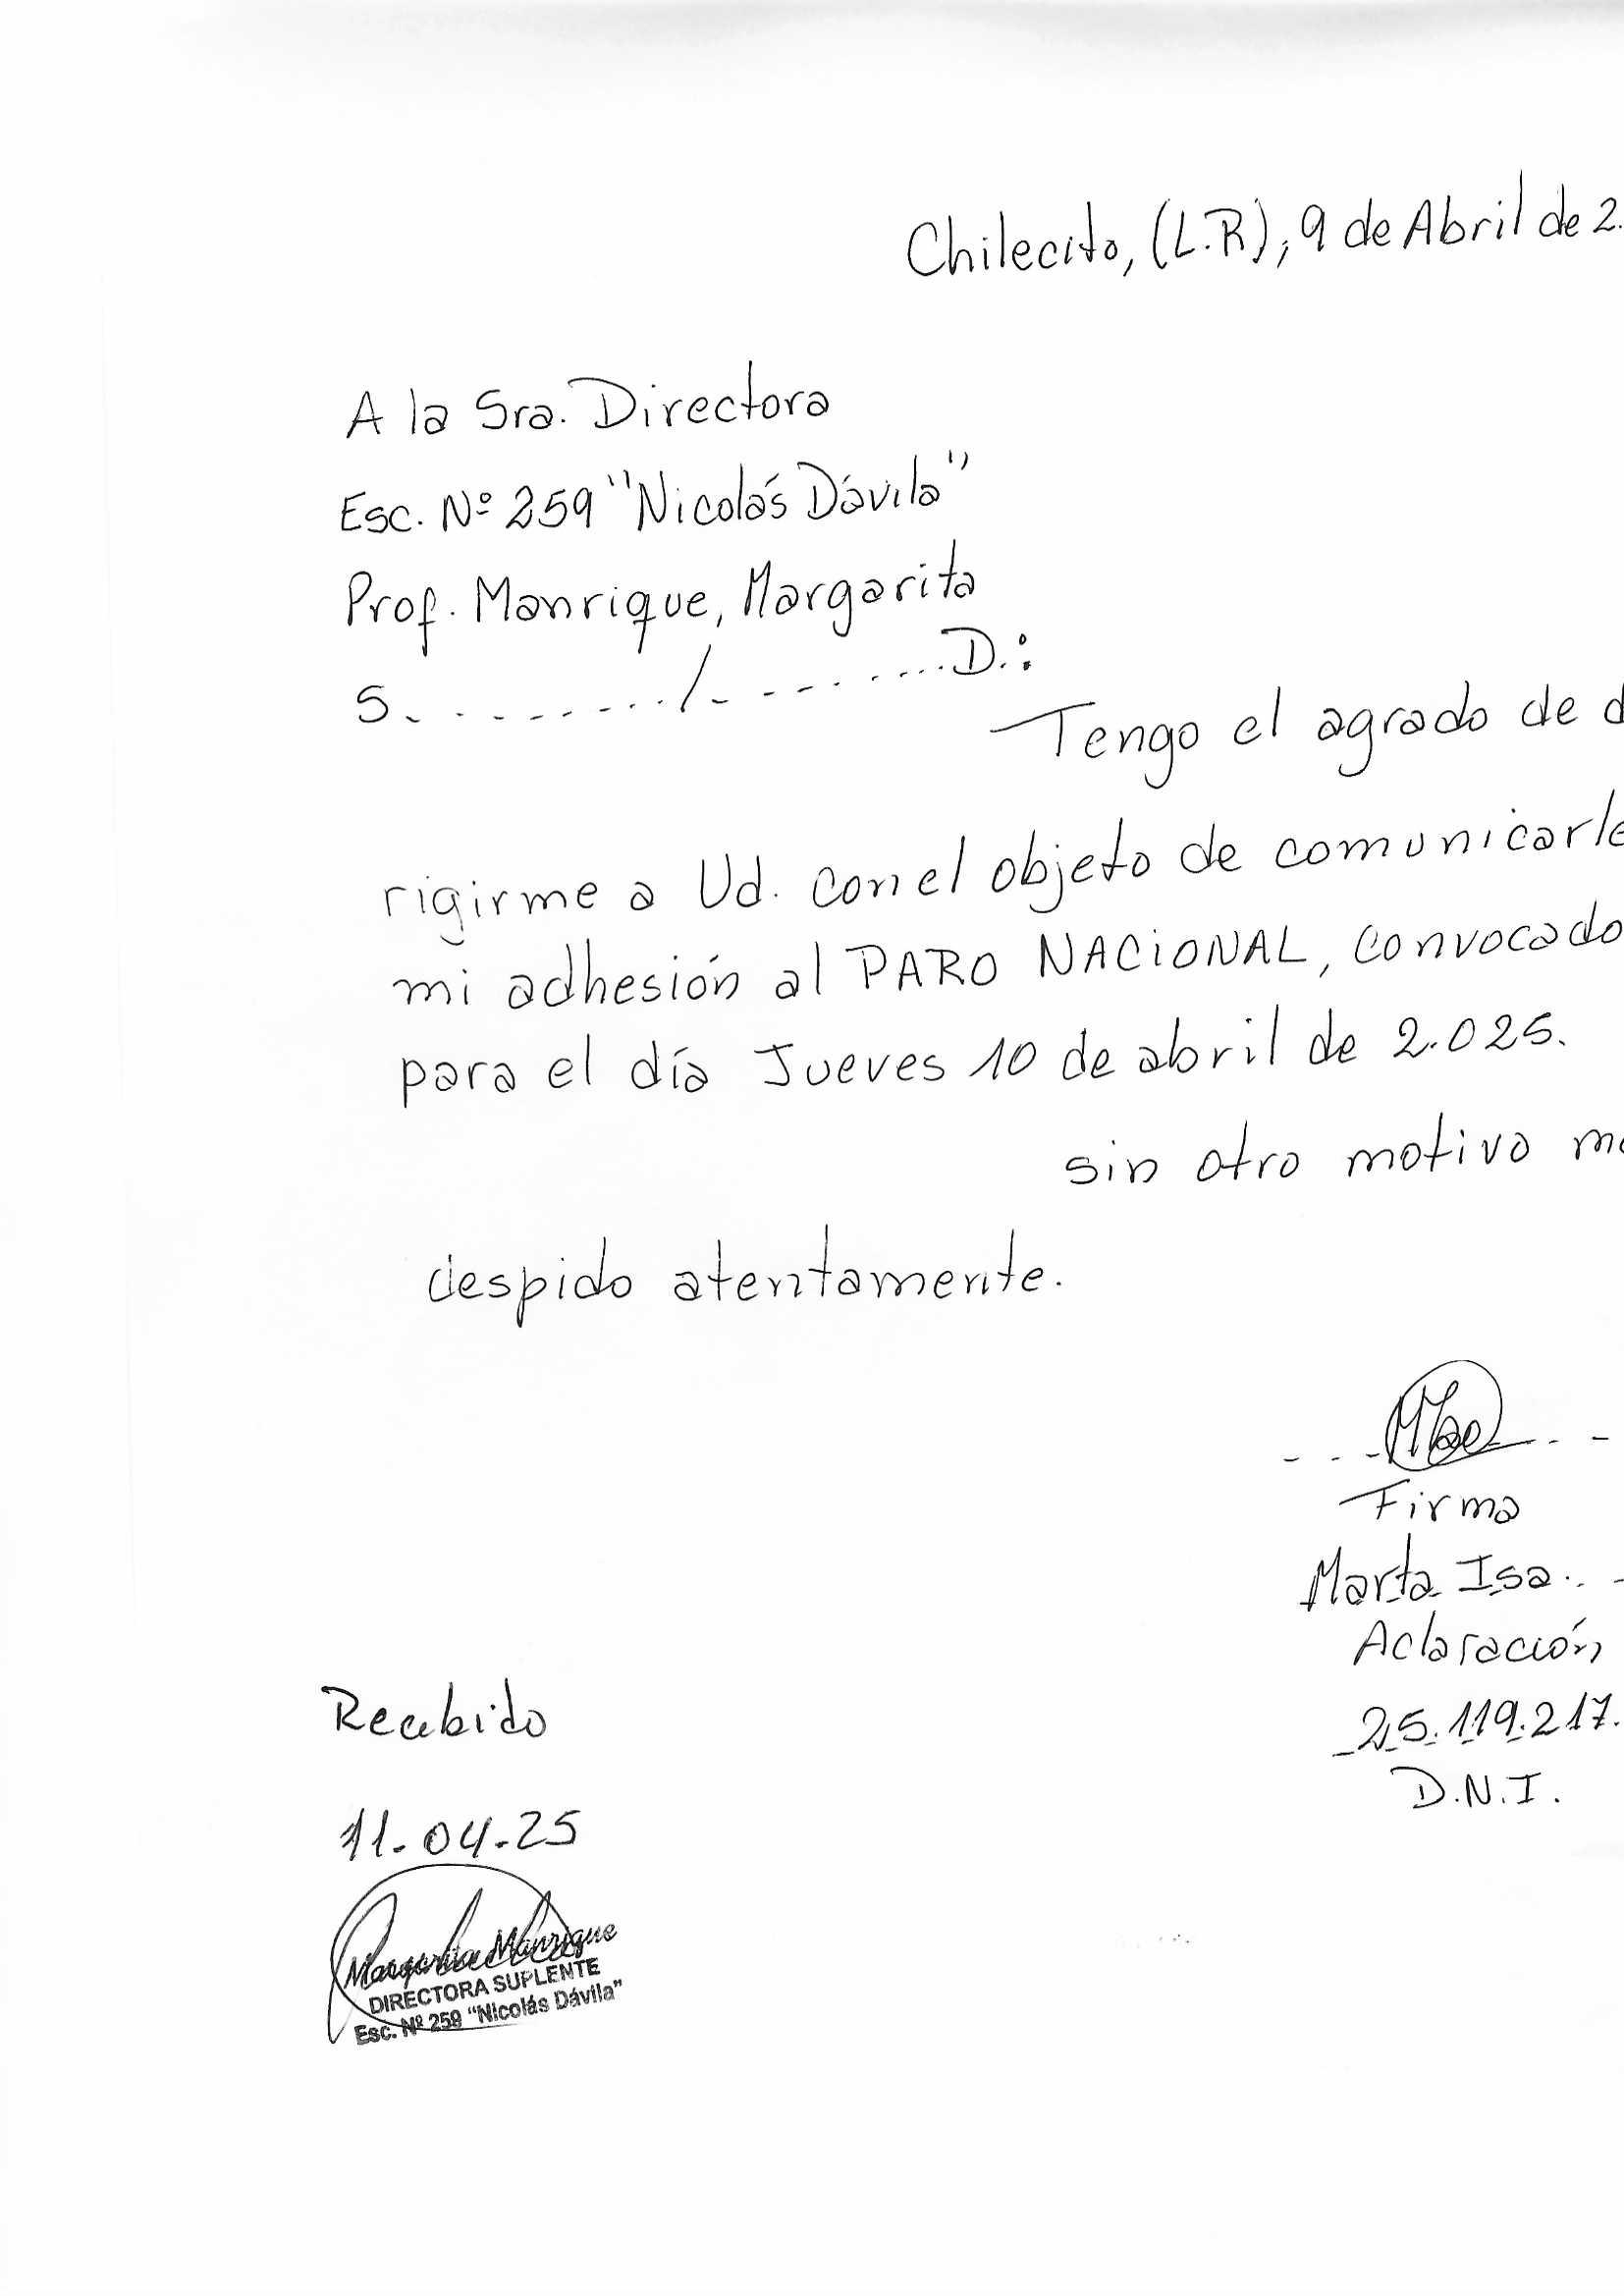 Chilecito, (L.R), 9 de Abril de 2.
A la Sra. Directora
Esc. Nº 259 "Nicolás Dávila"
Prof. Manrique, Margarita
S. - - - - - - - - / - - - - - - - - D.:
Tengo el agrado de d
rigirme a Ud. con el objeto de comunicarle
mi adhesión al PARO NACIONAL, convocado
para el día Jueves 10 de abril de 2.025.
sin otro motivo me
despido atentamente.
Firma
Marta Isa
Aclaración
25.119.217.
D.N.I.
Recibido
11-04-25
Margarita Manrique
DIRECTORA SUPLENTE
Esc. Nº 259 "Nicolás Dávila"